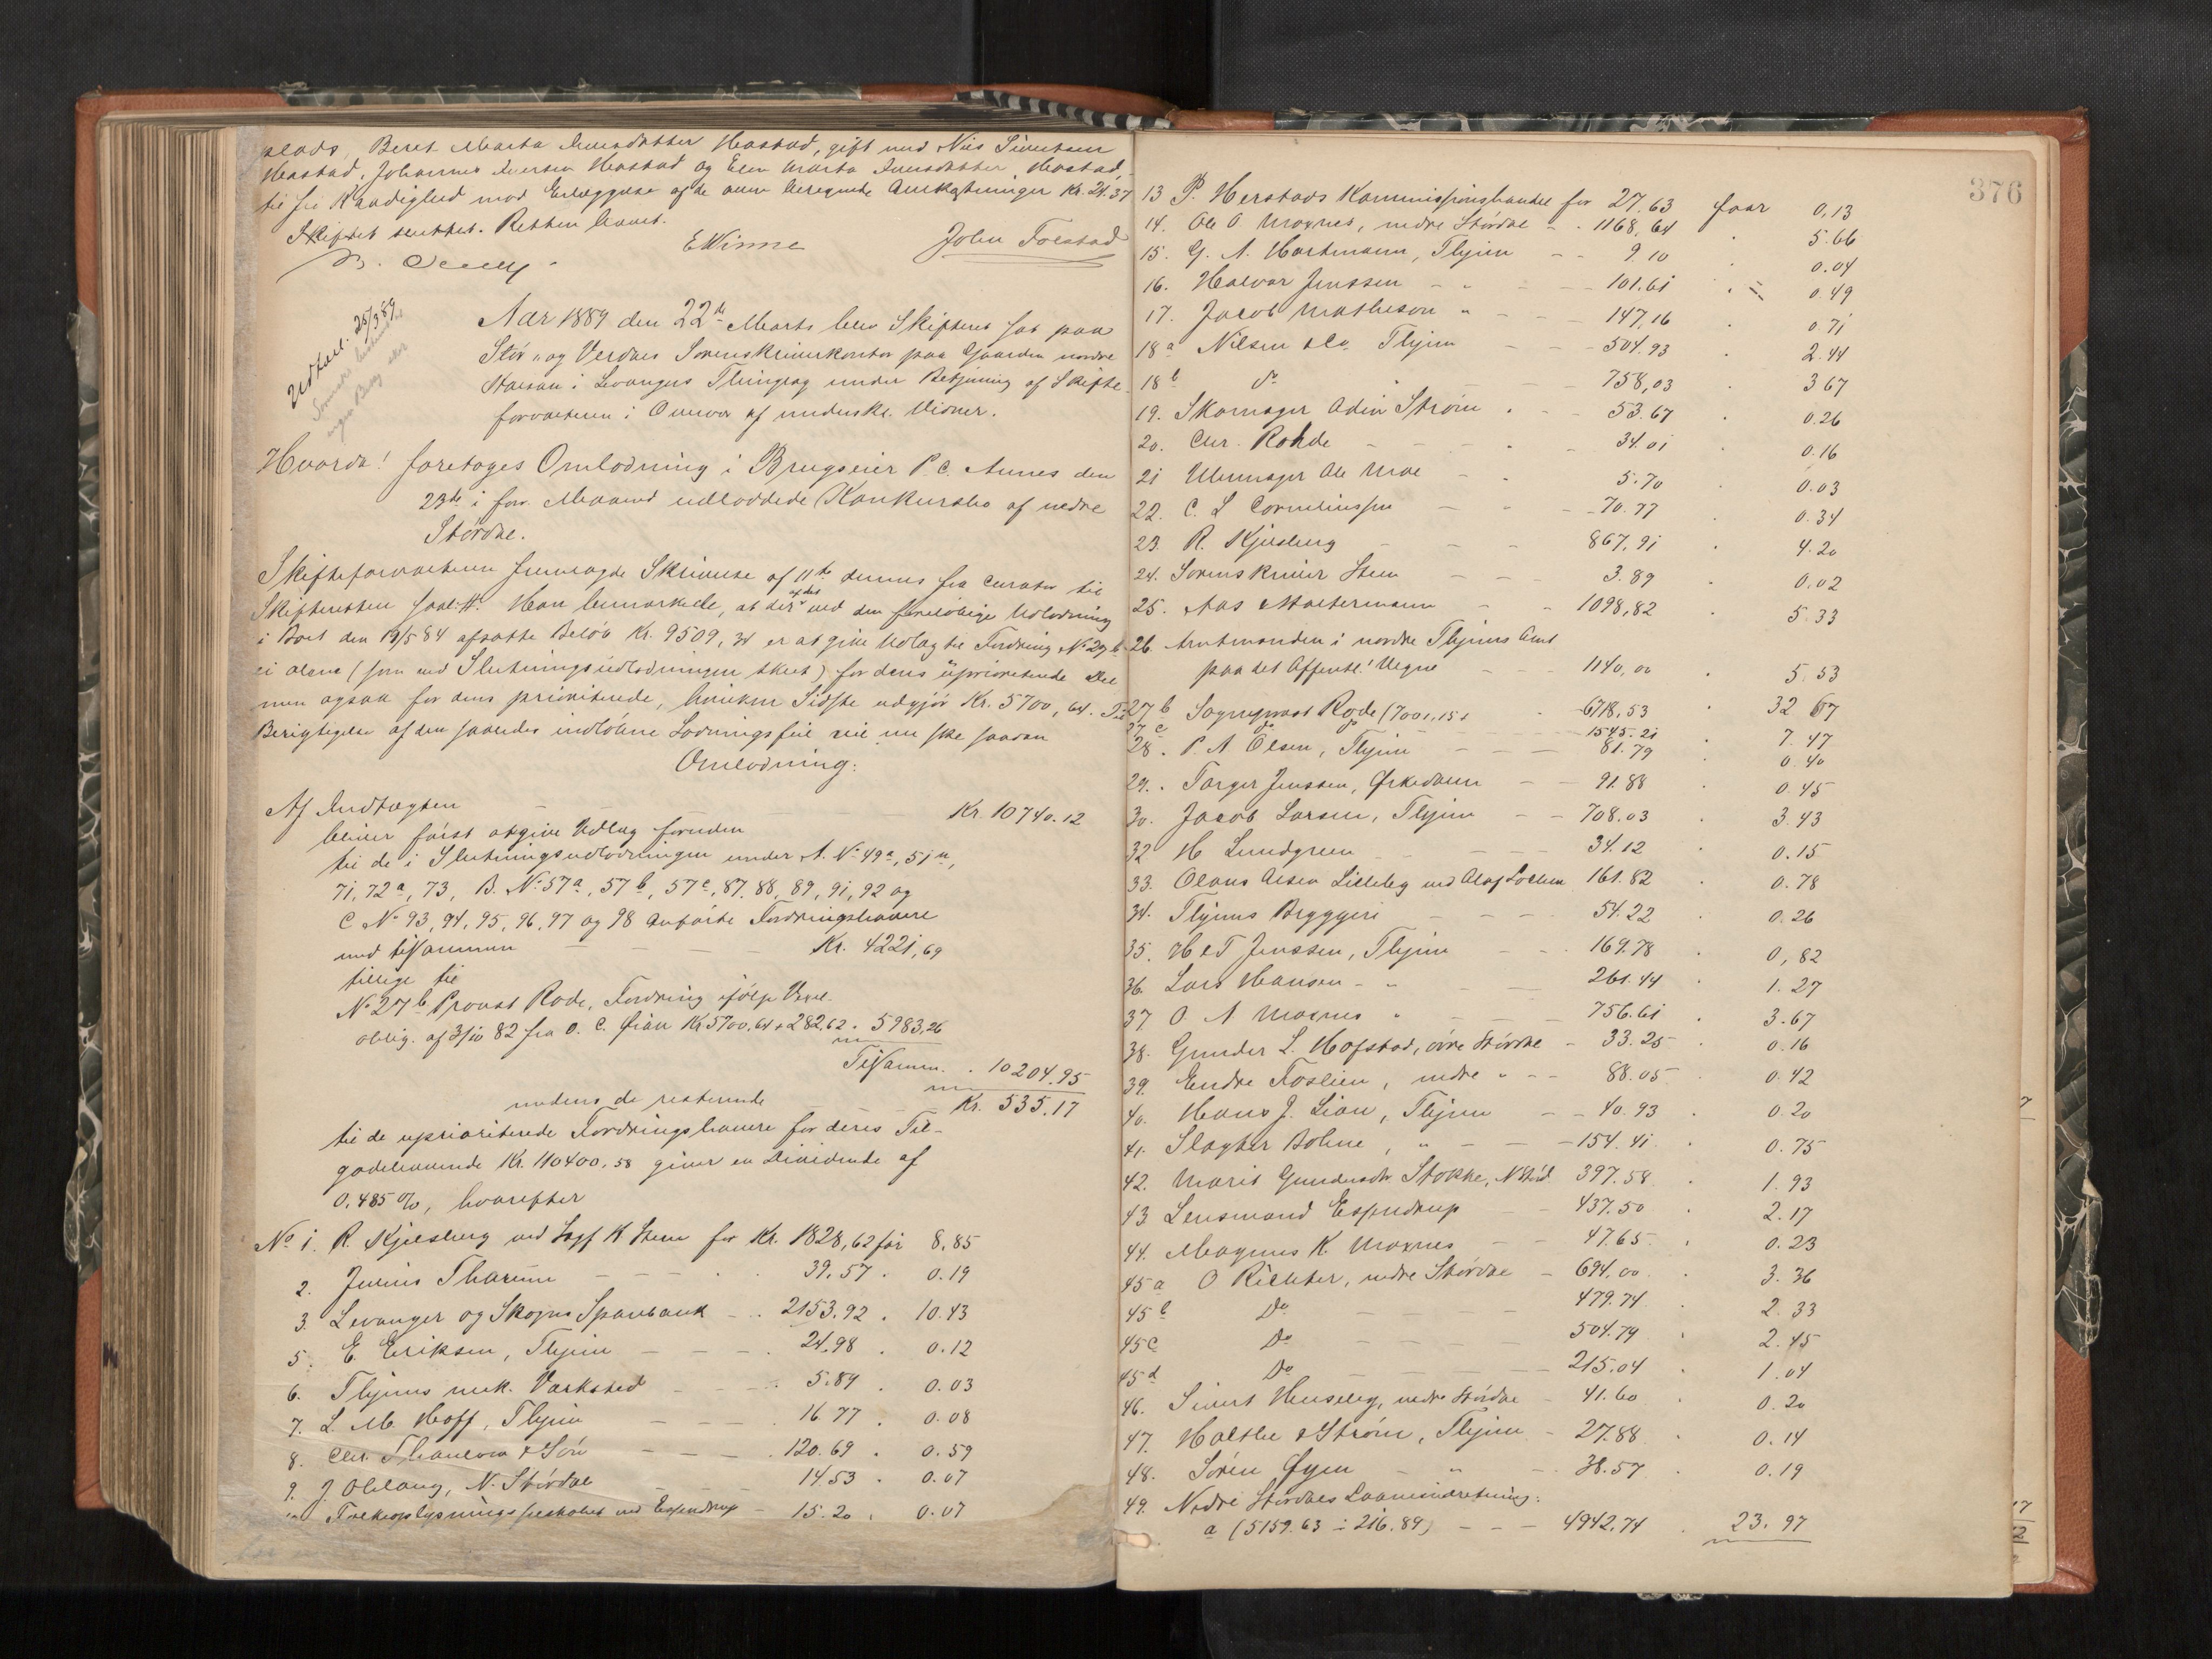 plads, Beret Marta Iversdatter Hastad, gift med Nils Sivertsen
Hastad, Johannes Iversen Hastad og Elen Marta Iversdatter Hastad,
til fri Raadighed mod Erlæggelse af de oven beregnede Omkostninger Kr. 24.37
Skiftet sluttet. Retten hævet.
EWinne
John Folstad
Udfærd. 25/3 89.
Aar 1889 den 22de Marts blev Skifteret sat paa
Stør- og Verdales Sorenskriverkontor paa Gaarden nordre
Staaan i Levangers Thinglag under Betjening af Skifte-
forvalteren i Overvær af underskr. Vidner.
Hvorda! foretages Omlodning i Brugseier P. C. Aunes den
23de i forr. Maaned udloddede Konkursbo af nedre
Størdal.
Skifteforvalteren fremlagde Skrivelse af 11te dennes fra Curator til
Skifteretten saal. #. Han bemærkede, at der af det ved den foreløbige Udlodning
i Boet den 19/5 84 afsatte Beløb Kr. 9509,34 er at give Udlæg til Fordring No 27 b
ei alene (som ved Slutningsudlodningen skeet) for dens upriviterede Del
men ogsaa for dens prioriterede, hvilken Sidste udgjør Kr. 5700,64. Til
Berigtigelse af den saaledes indløbne Lodningsfeil vil nu ske saadan
Omlodning:
Af Indtægten — — — Kr. 10740.12
bliver først at give Udlæg foruden
til de i Slutningsudlodningen under A. No 49a, 51a,
71, 72a, 73, B. No 57a, 57b, 57c, 87. 88, 89, 91, 92 og
C No 93, 94, 95, 96, 97 og 98 anførte Fordringshavere
med tilsammen — — — Kr. 4221,69
tillige til
No 27 b Provst Rode, Fordring ifølge Vexel-
oblig. af 3/10 82 fra O. C. Øian Kr 5700.64 + 282,62 . 5983,26
Tilsamm. . 10204.95
medens de resterende — — — Kr. 535.17
til de uprioriterede Fordringshavere for deres Til-
godehavende Kr. 110400,58 giver en Dividende af
0,485 %, hvorefter
No 1. R. Kjelsberg ved Sagf K Steen for Kr. 1828,62 får 8,85
2. Julius Thaum — — — 39.57 . 0.19
3. Levanger og Skogns Sparebank — . 2153.92 . 10.43
5. E. Eriksen, Thjem — — — 24.98 . 0.12
6. Thjems mek. Værksted — — 5.89 . 0.03
7. L. M. Hoff, Thjem — — — 16.77 . 0.08
8. Chr. Thaulow & Søn — — — 120.69 . 0.59
9. J Øhlang, N. Størdal — — 14.53 . 0.07
" Folkeoplysningsselskabet ved Espendrup — 15.20 . 0.07
376
13 P. Herstads Kommissionshandel for 27.63 faar 0,13
14. Ole O. Moxnes, nedre Størdal - . 1168,64 5.66
15. G. A. Hartmann, Thjem — — 9.10 0.04
16. Halvor Jenssen — " — — 101.61 . 0.49
17. Jacob Matheson " — — 147,16 0.71
18a Nilsen & Co. Thjem — — 504.93 2.44
18b do " — — 758,03 3 67
19. Skomager Odin Strøm . — — 53.67 0.26
20. Chr. Rohde — — — 34.01 0.16
21 Uhrmager Ole Moe — — 5.70 0.03
22. C. L Corneliussen — — 70.77 0.34
23. R. Kjelsberg — — — 867,91 4.20
24. Sorenskriver Steen — — 3.89 0,02
25. Aas & Waltermann — — 1098,82 5.33
26. Amtmanden i nordre Thjems Amt
paa det Offentl! Vegne — — 1140,00 5.53
27 b Sogneprest Rode (7001,15 ÷ 6718.53 32 67
27 c do do 1545.21 7.47
28. P. A. Olsen, Thjem — — — 81.79 0.40
29. Torger Jenssen, Ørkedalen — — 91.88 0.45
30. Jacob Larsen, Thjem — — 708.03 3.43
32 H Lundgreen — — — 34.12 0.15
33. Olaus Olsen Lilleby ved Olaf Lochen 161.82 0.78
34. Thjems Bryggeri — — — 54.22 0.26
35. H & T Jenssen, Thjem — — 169.78 0,82
36. Lars Hansen — " — — 261.44 1.27
37 O. A Moxnes " — — 756.61 3.67
38. Gunder L. Hofstad, øvre Størdal — 33.25 0.16
39. Endre Foslien, nedre " — — 88.05 0.42
40. Hans J. Lian, Thjem — — 40.93 0.20
41. Slagter Bohne, " — — 154.41 0.75
42. Marit Gundersdtr Stokke, N Stød. 397.58 1.93
43 Lensmand Espendrup — — 437.50 2.17
44. Magnus K. Moxnes — — 47.65 0.23
45 a O Richter, nedre Størdal — 694,00 3.36
45 b Do — — — 479.74 2.33
45 c Do — — — 504.79 2.45
45 d Do — — — 215.04 1.04
46. Sivert Huseby, nedre Størdal — 41.60 0.20
47. Halseth & Strøm, Thjem — 27.88 0.14
48. Søren Øyen — " — 38.57 0.19
49. Nedre Størdals Laaneindretning:
a (5159.63 ÷ 216.89) — — — 4942,74 23.97